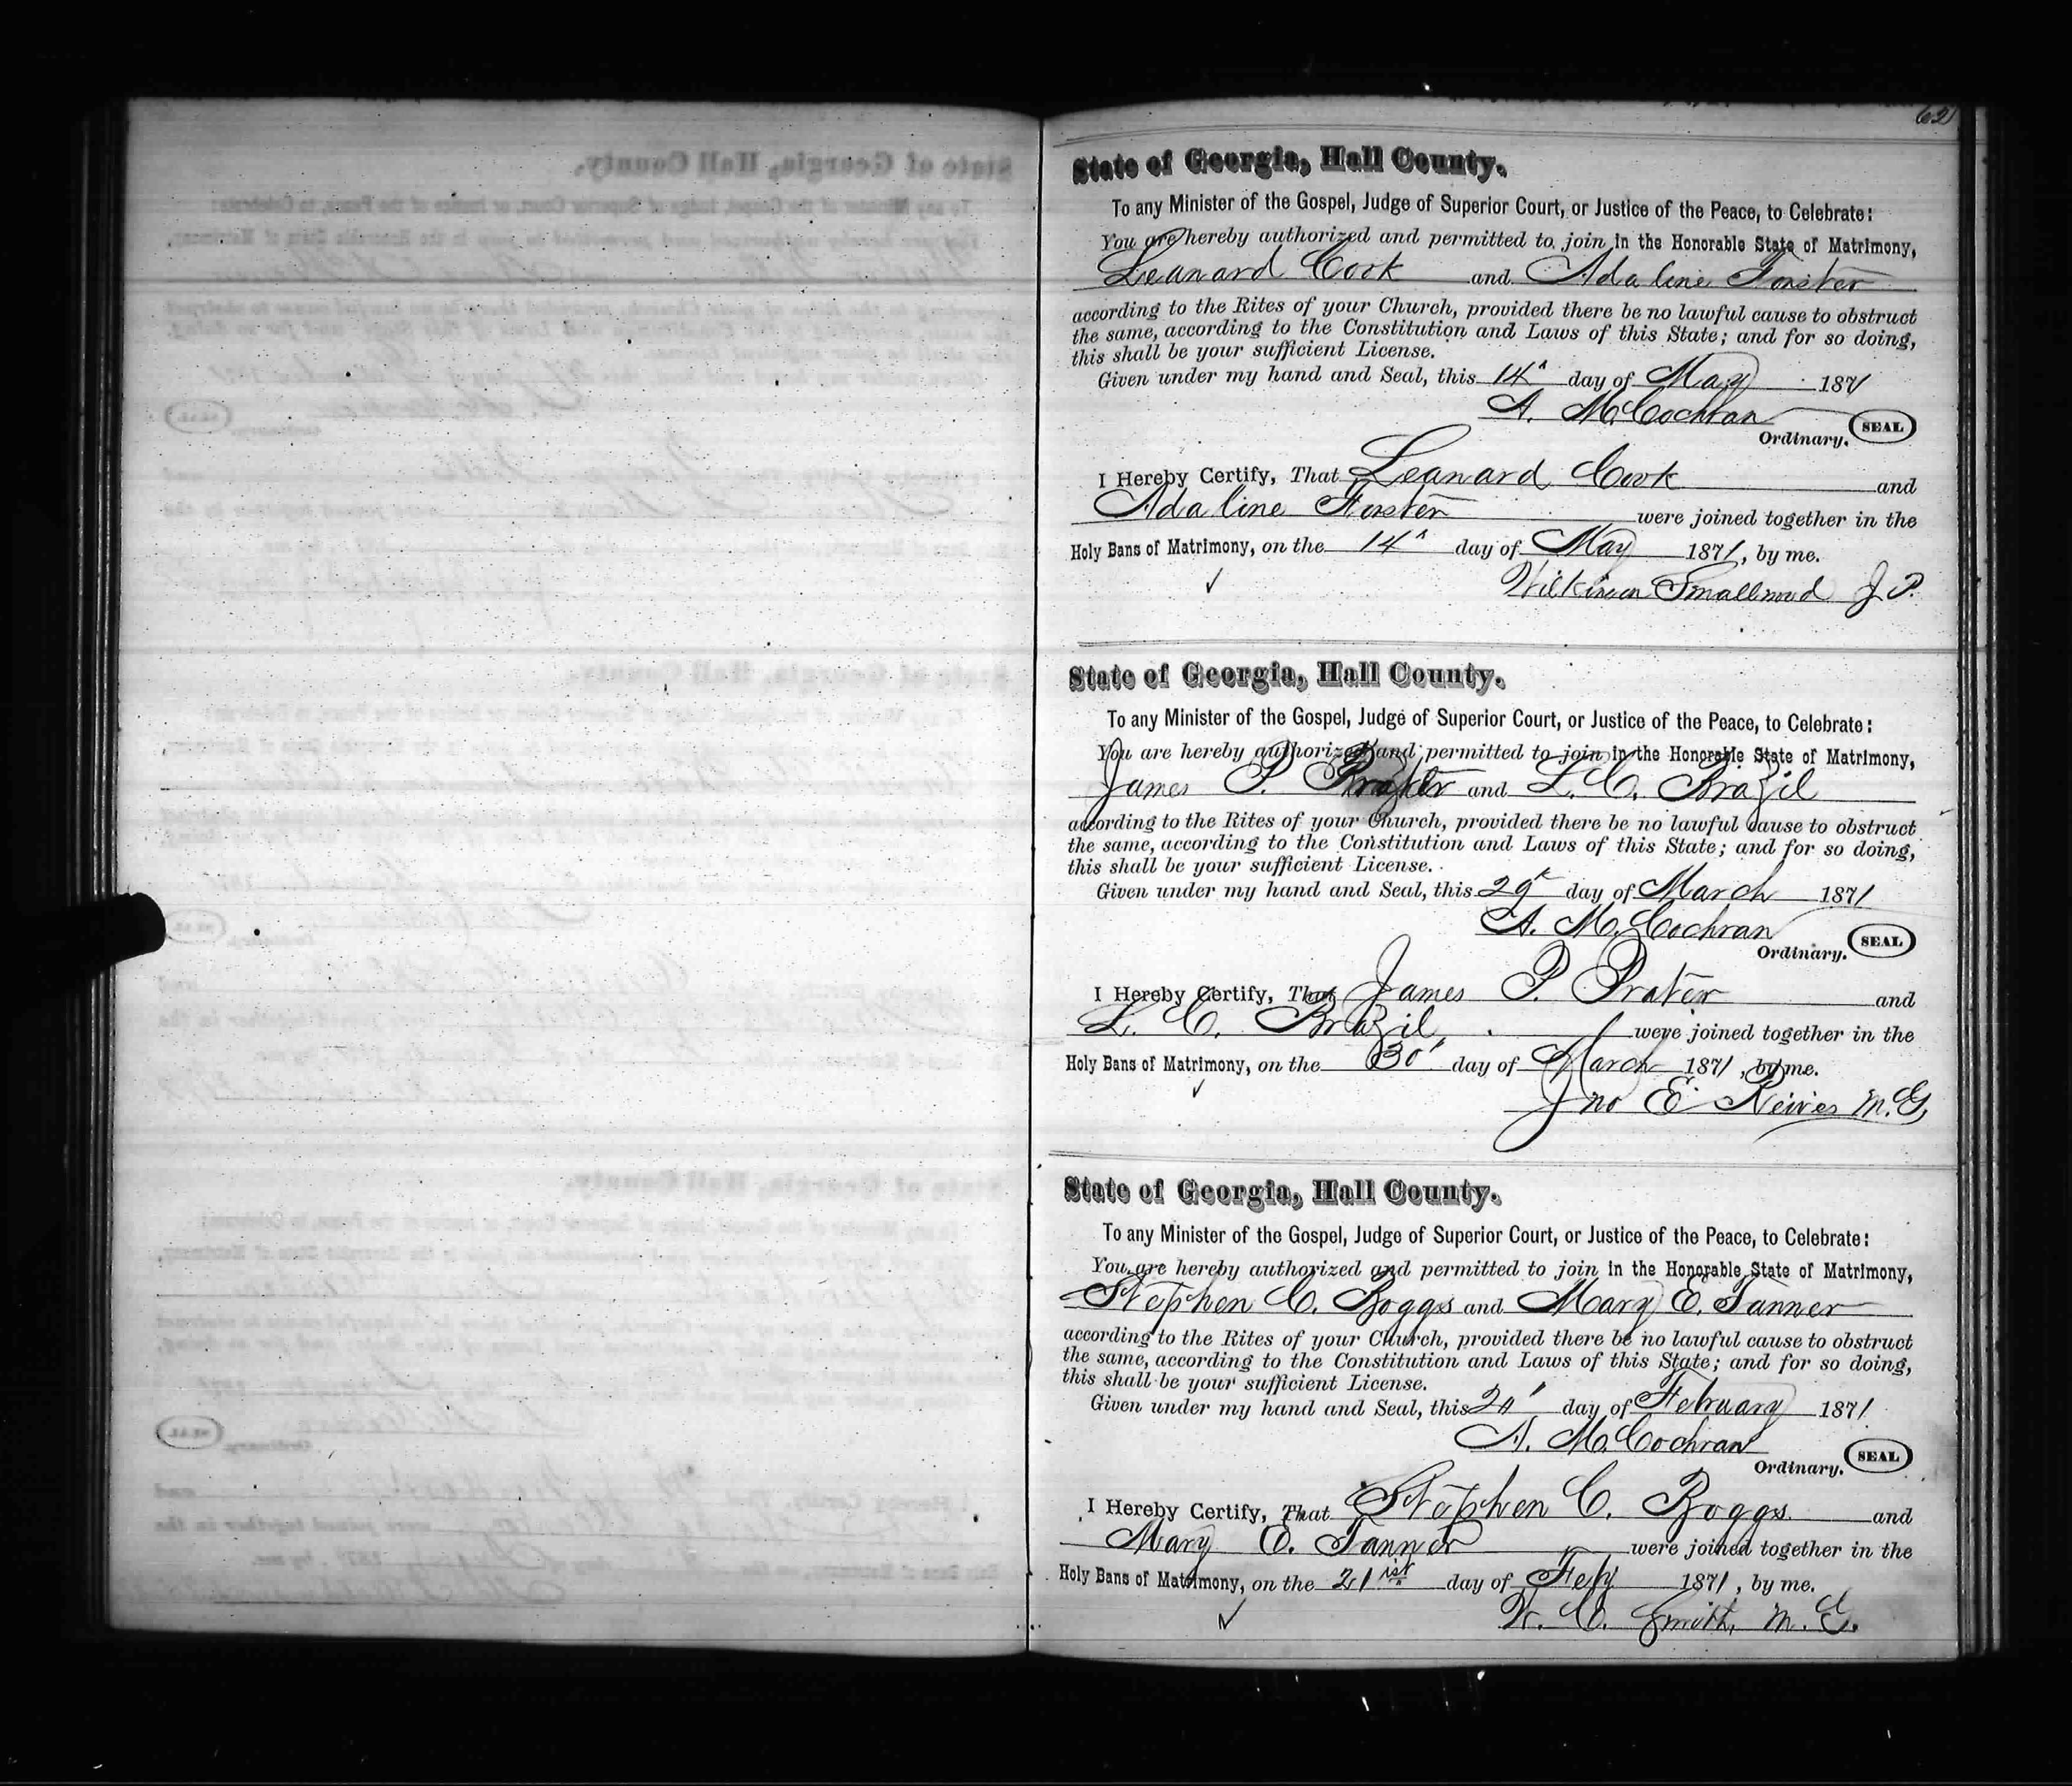 62
State of Georgia, Hall County.
To any Minister of the Gospel, Judge of Superior Court, or Justice of the Peace, to Celebrate:
You are hereby authorized and permitted to join in the Honorable State of Matrimony,
Leanard Cook and Adaline Forster
according to the Rites of your Church, provided there be no lawful cause to obstruct
the same, according to the Constitution and Laws of this State; and for so doing,
this shall be your sufficient License.
Given under my hand and Seal, this 14 day of May 1871
A. M. Cochran
Ordinary. SEAL
I Hereby Certify, That Leanard Cook and
Adaline Forster were joined together in the
Holy Bans of Matrimony, on the 14 day of May 1871, by me.
Wilkinson Smallwood J P.
State of Georgia, Hall County.
To any Minister of the Gospel, Judge of Superior Court, or Justice of the Peace, to Celebrate:
You are hereby authorized and permitted to join in the Honorable State of Matrimony,
James P. Prater and L. C. Brazil
according to the Rites of your Church, provided there be no lawful cause to obstruct
the same, according to the Constitution and Laws of this State; and for so doing,
this shall be your sufficient License.
Given under my hand and Seal, this 29 day of March 1871
A. M. Cochran
Ordinary. SEAL
I Hereby Certify, That James P. Prater and
L. C. Brazil were joined together in the
Holy Bans of Matrimony, on the 30 day of March 1871, by me.
Jno E M. G.
State of Georgia, Hall County.
To any Minister of the Gospel, Judge of Superior Court, or Justice of the Peace, to Celebrate:
You are hereby authorized and permitted to join in the Honorable State of Matrimony,
Stephen C. Boggs and Mary E. Tanner
according to the Rites of your Church, provided there be no lawful cause to obstruct
the same, according to the Constitution and Laws of this State; and for so doing,
this shall be your sufficient License.
Given under my hand and Seal, this day of February 1871
A. M. Cochran
Ordinary. SEAL
I Hereby Certify, That Stephen C. Boggs and
Mary E. Tanner were joined together in the
Holy Bans of Matrimony, on the 21ist day of Feby 1871, by me.
W. C. Smith, M. G.